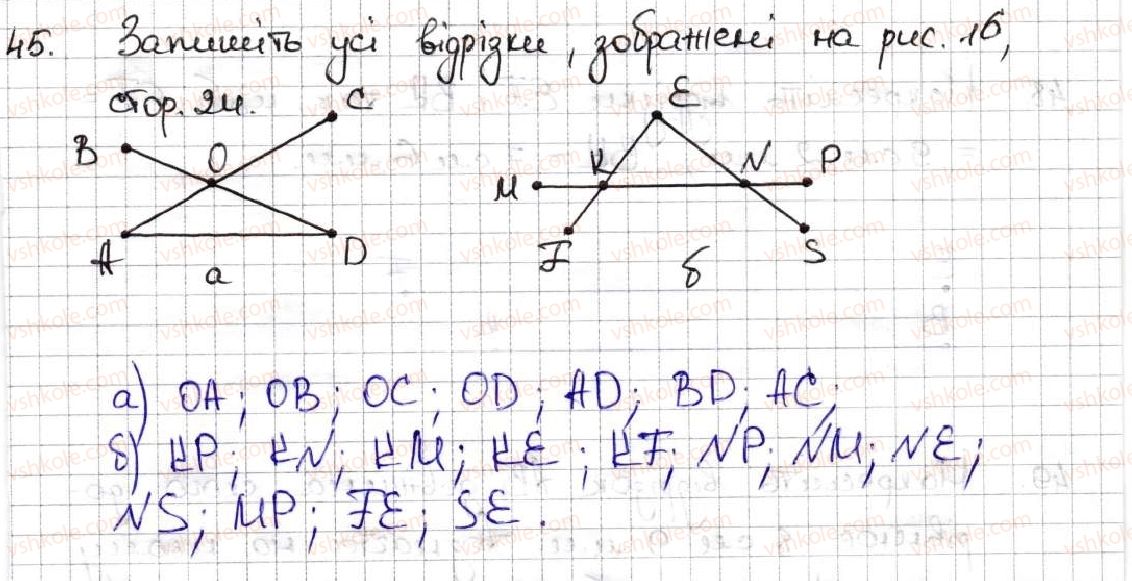 45. Запишіть усі відрізки, зображені на рис. 16,
стор. 24.
B O C A D а
E K N M P F S б
а) OA; OB; OC; OD; AD; BD; AC;
б) KP; KN; KM; KE; KF; NP; NM; NE;
NS; MP; FE; SE.